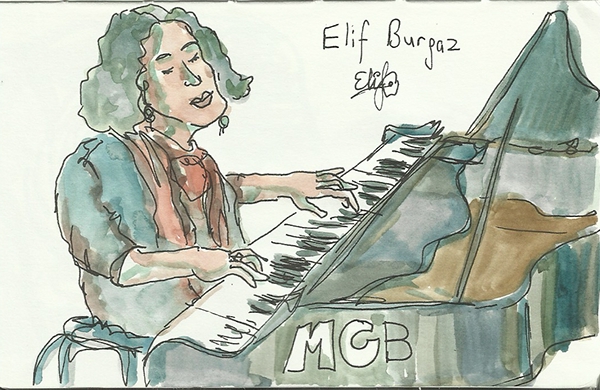 Elif Burgaz
Elif
MGB